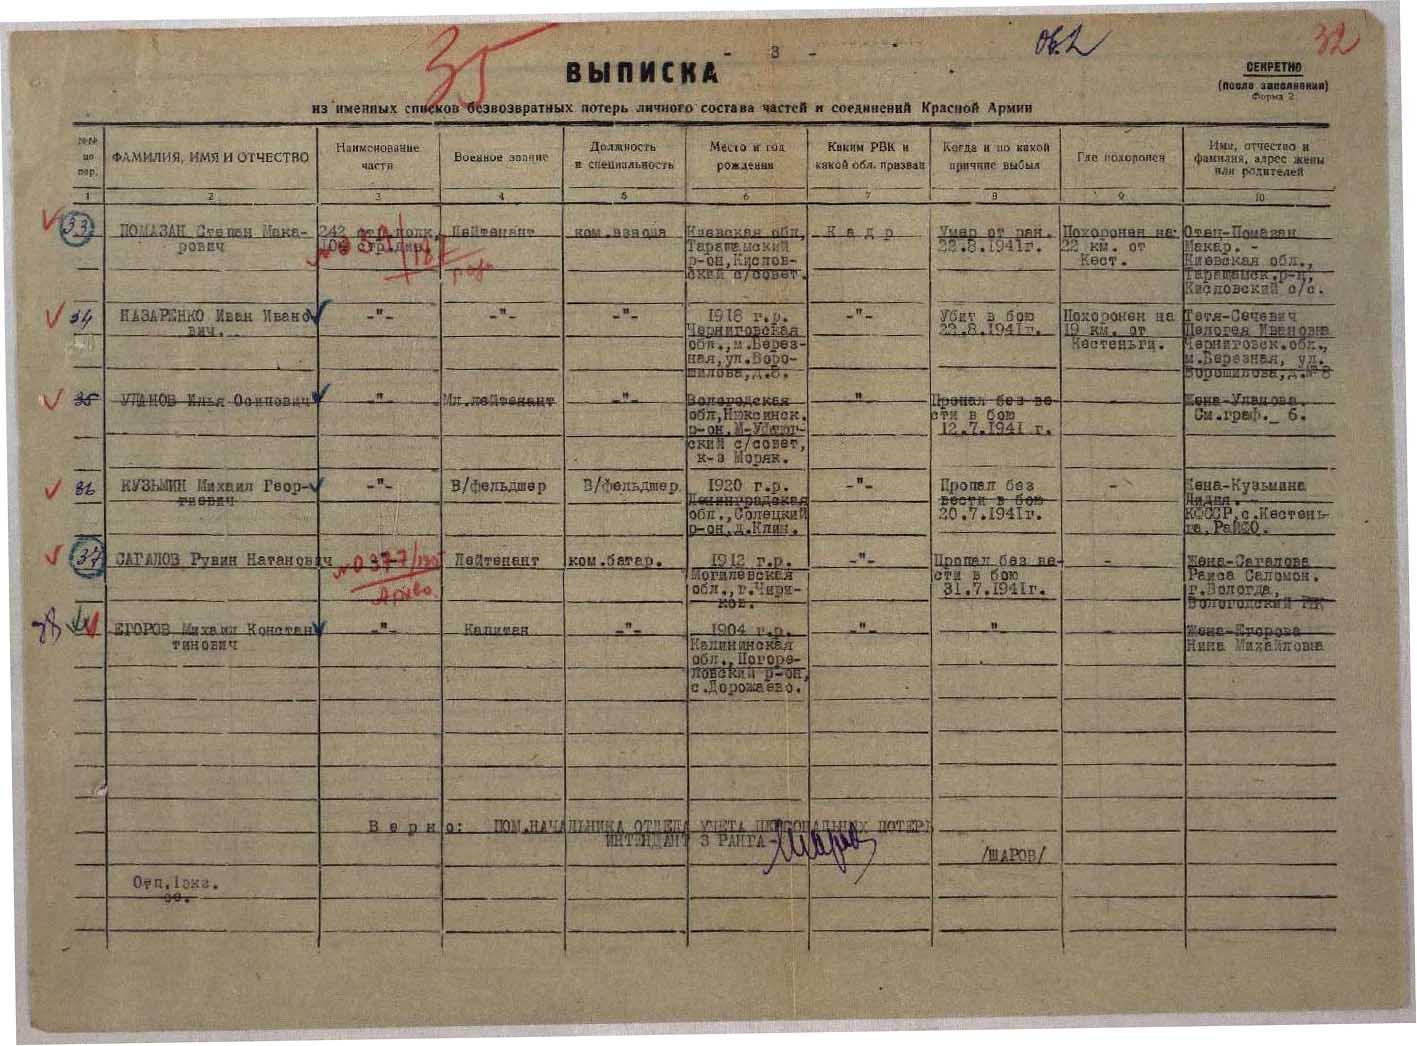 35
- 3 -
об.2
32
ВЫПИСКА
СЕКРЕТНО
(после заполнения)
Форма 2
из именных списков безвозвратных потерь личного состава частей и соединений Красной Армии
№№ по пор.
ФАМИЛИЯ, ИМЯ И ОТЧЕСТВО
Наименование части
Военное звание
Должность и специальность
Место и год рождения
Каким РВК и какой обл. призван
Когда и по какой причине выбыл
Где похоронен
Имя, отчество и фамилия, адрес жены или родителей
1 2 3 4 5 6 7 8 9 10
33
ПОМАЗАН Степан Мака-
рович
242 стр.полк,
104 стр.див.
Лейтенант
ком.взвода
Киевская обл,
Таращамский
р-он,Кислов-
ский с/совет.
Кадр
Умер от ран.
22.8.1941г.
Похоронен на
22 км. от
Кест.
Отец-Помазан
Макар. -
Киевская обл.,
Таращамск.р-н,
Кисловский с/с.
34
НАЗАРЕНКО Иван Ивано-
вич.
-"-
-"-
-"-
1918 г.р.
Черниговская
обл.,м.Берез-
ная,ул.Воро-
шилова,д.8.
-"-
Убит в бою
22.8.1941г.
Похоронен на
19 км. от
Кестеньги.
Тетя-Сечевич
Пелогея Ивановна
Черниговск.обл.,
м.Березная, ул.
Ворошилова,д.№8
35
УЛАНОВ Илья Осипович
-"-
Мл.лейтенант
-"-
Вологодская
обл,Нюксинск.
ский с/совет,
к-з Моряк.
-"-
Пропал без ве-
сти в бою
12.7.1941 г.
Жена-Уланова.
См.граф. 6.
36
КУЗЬМИН Михаил Геор-
гиевич
-"-
В/фельдшер
В/фельдшер
1920 г.р.
Ленинградская
обл.,Солецкий
р-он,д.Клин.
-"-
Пропал без
вести в бою
20.7.1941г.
-
Жена-Кузьмина
Лидия. -
КФССР,с.Кестень-
га,РайФО.
37
САГАЛОВ Рувин Натанович
№0377/190
Лейтенант
ком.батар.
1912 г.р.
Могилевская
обл.,г.Чири-
ков.
-"-
Пропал без ве-
сти в бою
31.7.1941г.
-
Жена-Сагалова
Раиса Саломон.
г.Вологда,
Вологодский РВК
38
ЕГОРОВ Михаил Констан
тинович
-"-
Капитан
-"-
1904 г.р.
Калининская
обл.,Погоре-
ловский р-он,
с.Дорожаево.
-"-
-"-
Жена-Егорова
Нина Михайловна
Верно: ПОМ.НАЧАЛЬНИКА ОТДЕЛА УЧЕТА ПЕРСОНАЛЬНЫХ ПОТЕРЬ
ИНТЕНДАНТ 3 РАНГА-
/ШАРОВ/
Отп.1экз.